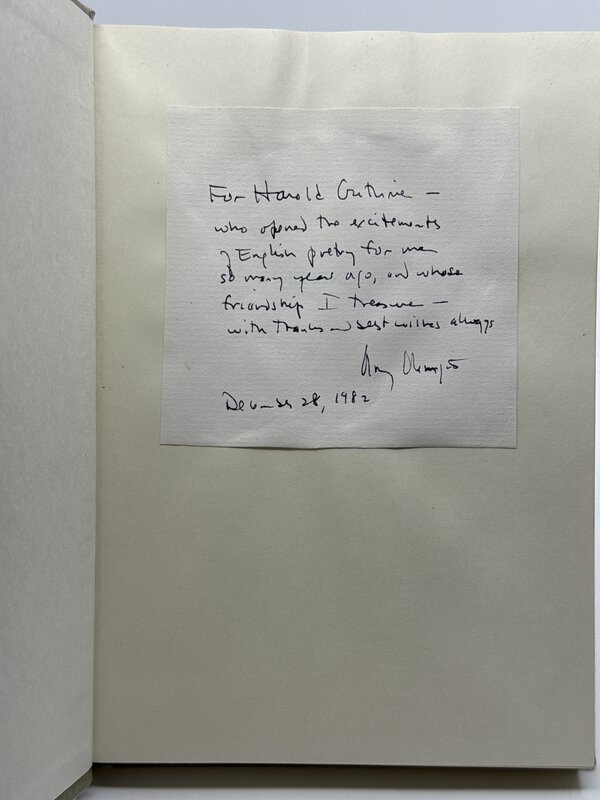 For Harold Guthrie –
who opened the excitements
of English poetry for me
so many years ago, and whose
friendship I treasure –
with thanks and best wishes always
December 28, 1982